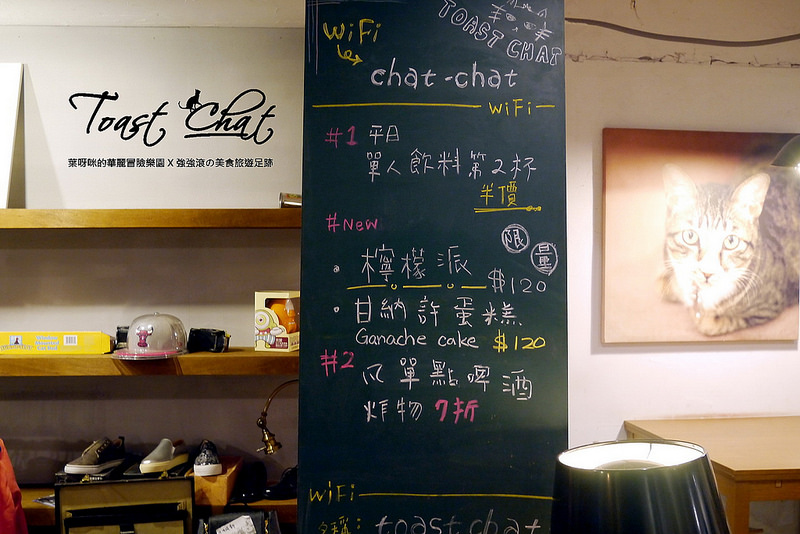 Toast Chat
葉呀咪的華麗冒險樂園 X 強強滾の美食旅遊足跡
WiFi
TOAST CHAT
chat-chat
WiFi
#1 平日
單人飲料第2杯
半價
#New
限量
檸檬派 $120
甘納許蛋糕
Ganache cake $120
#2 凡單點啤酒
炸物7折
WiFi
名稱: toast chat